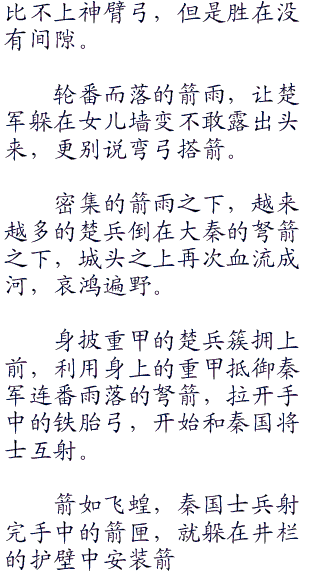 比不上神臂弓，但是胜在没
有间隙。
轮番而落的箭雨，让楚
军躲在女儿墙变不敢露出头
来，更别说弯弓搭箭。
密集的箭雨之下，越来
越多的楚兵倒在大秦的弩箭
之下，城头之上再次血流成
河，哀鸿遍野。
身披重甲的楚兵簇拥上
前，利用身上的重甲抵御秦
军连番雨落的弩箭，拉开手
中的铁胎弓，开始和秦国将
士互射。
箭如飞蝗，秦国士兵射
完手中的箭匣，就躲在井栏
的护壁中安装箭